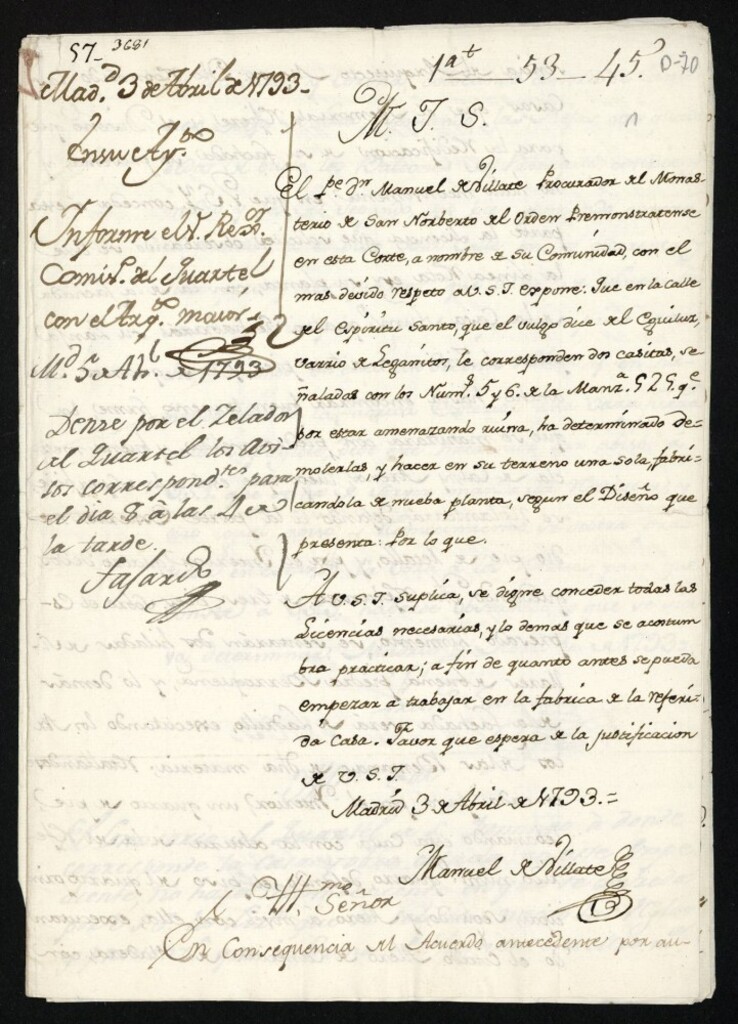 57- 3681
1ª t 53 45.
D-70
Mad.d 3 de Abril de 1793.
En su Ay.to
Informe el S.r Reg.or
Comis.o del Quartel
con el Arq.to maior
M.d 5 de Ab.l de 1793
Dense por el Zelador
del Quartel los Avi-
sos correspond.tes para
el dia 8 à las 4 de
la tarde.
Fajardo
M. I. S.
El P.e D.n Manuel de Villate Procurador del Monas-
terio de San Norberto del Orden Premonstratense
en esta Corte, a nombre de su Comunidad, con el
mas devido respeto a V.S.I. expone: Que en la calle
del Espiritu Santo, que el vulgo dice del Eguiluz,
varrio de Leganitos, le corresponden dos casitas, se-
ñaladas con los Num.s 5 y 6. de la Manz.a 525. q.e
por estar amenazando ruina, ha determinado de-
molerlas, y hacer en su terreno una sola, fabri-
candola de nueba planta, segun el Diseño que
presenta: Por lo que.
A V.S.I. suplica, se digne conceder todas las
Licencias necesarias, y lo demas que se acostum
bra practicar; a fin de quanto antes se pueda
empezar a trabajar en la fabrica de la referi-
da Casa. Favor que espera de la justificacion
de V.S.I.
Madrid 3 de Abril de 1793.=
Manuel de Villate
Ill.mo Señor
En Consequencia del Acuerdo antecedente por au-